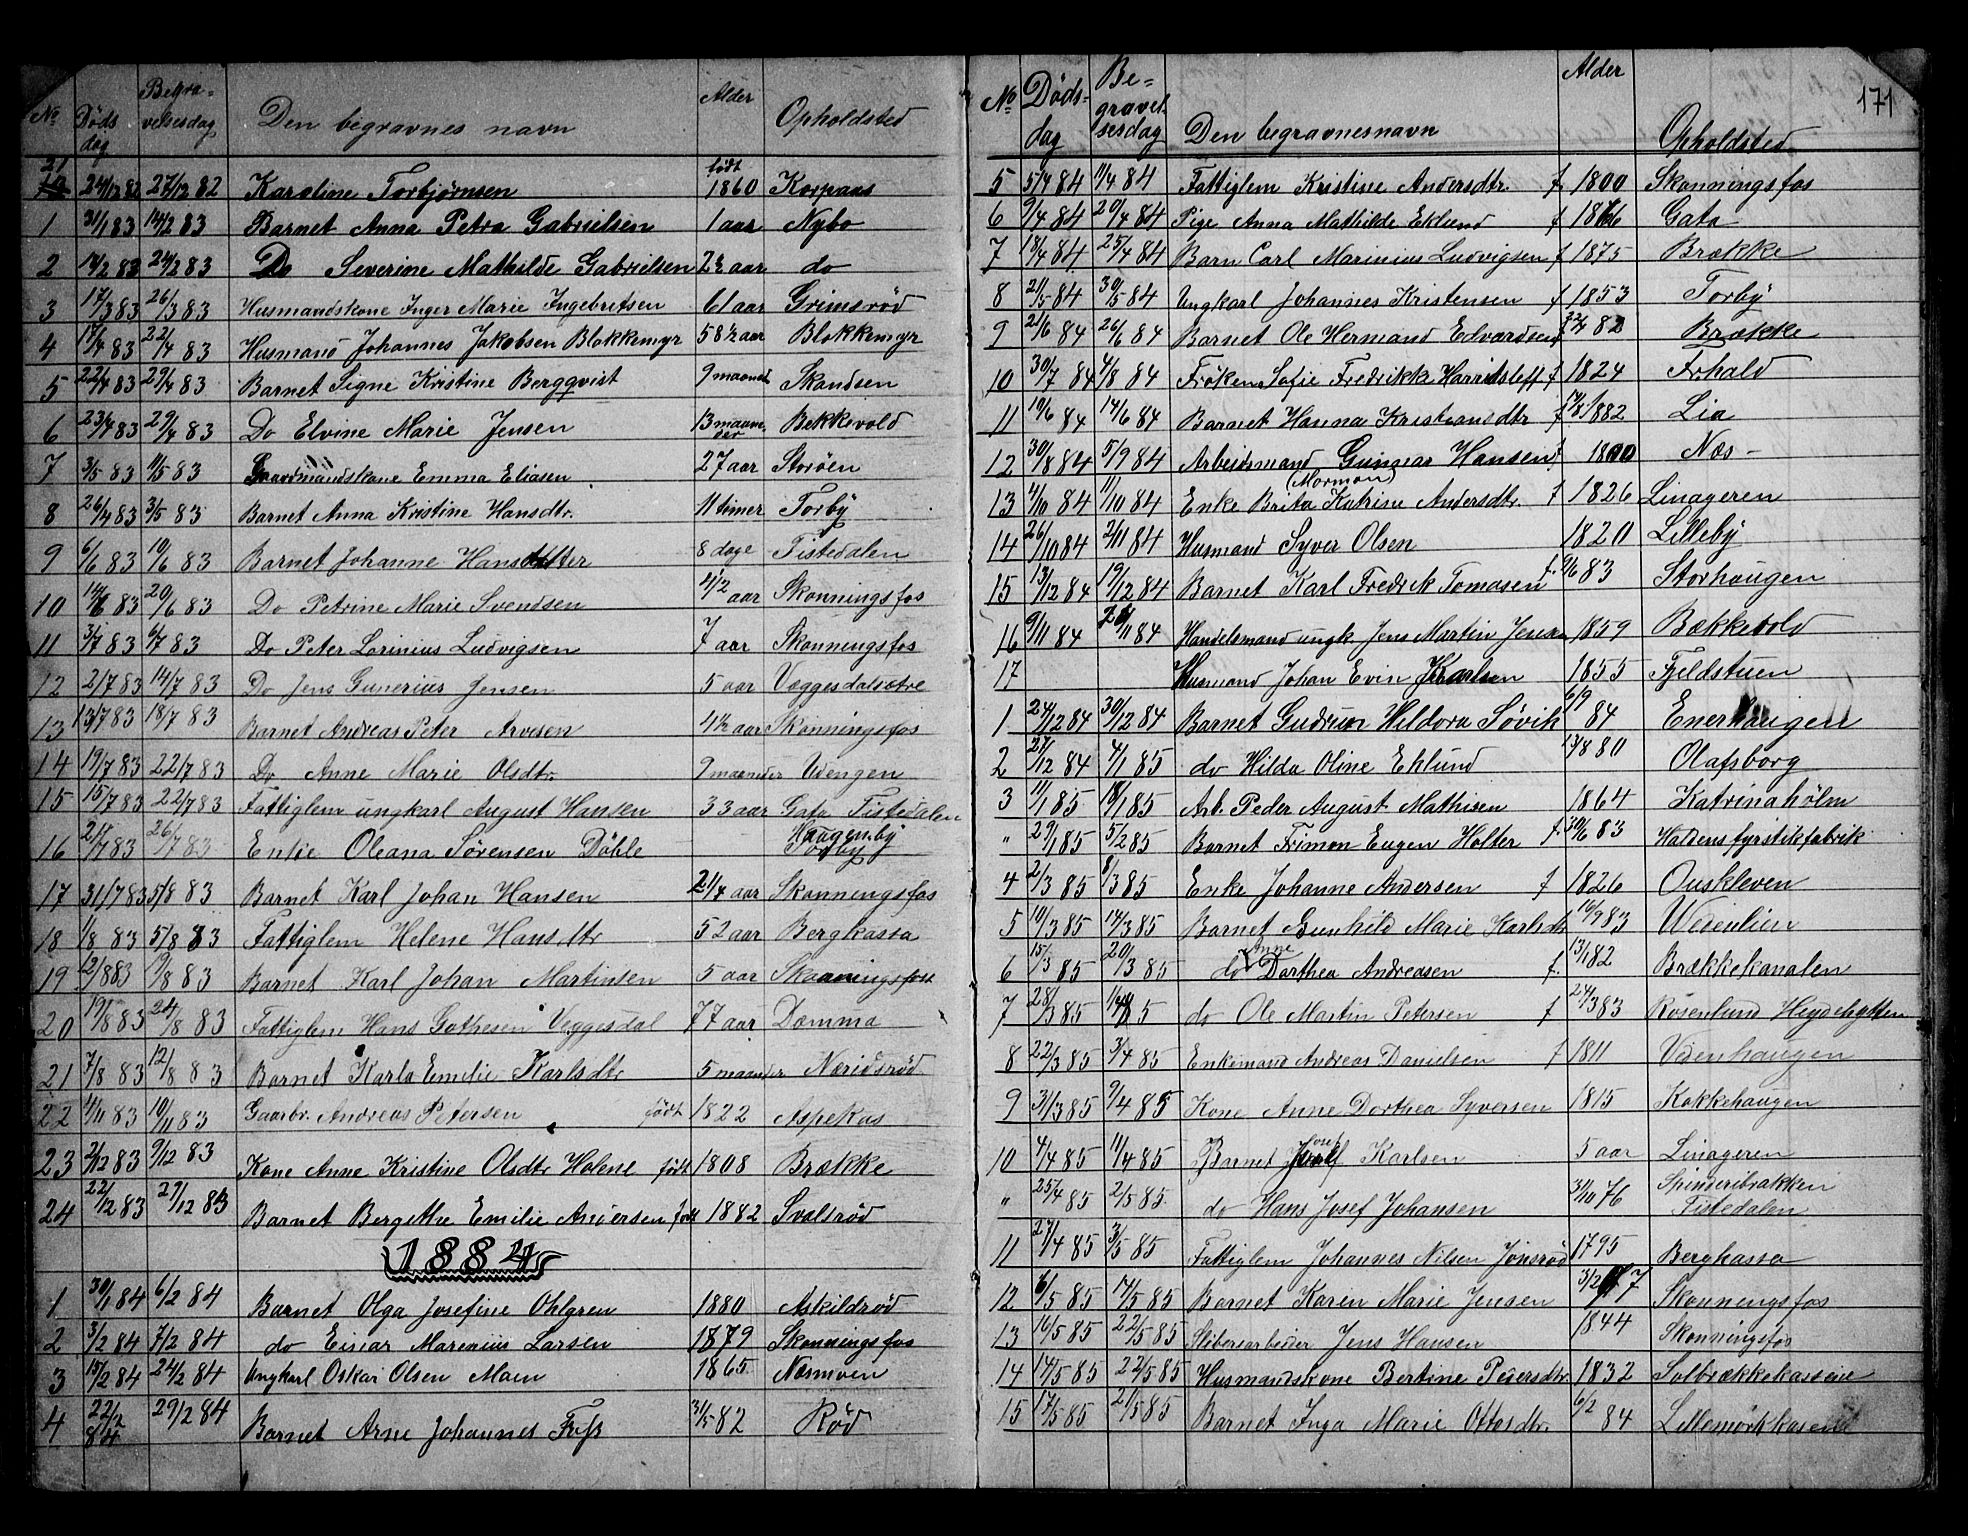 No Døds dag Begra- velsesdag Den begravnes navn Alder Opholdsted
21 24/12 82 27/12 82 Karoline Torbjørnsen født 1860 Korpaas
1 31/1 83 14/2 83 Barnet Anna Petra Gabrielsen 1 aar Nybo
2 14/2 83 24/2 83 Do Severine Mathilde Gabrielsen 2½ aar do
3 17/3 83 26/3 83 Husmandskone Inger Marie Ingebritsen 61 aar Grimsrød
4 17/4 83 22/4 83 Husmand Johannes Jakobsen Blokkemyr 58½ aar Blokkemyr
5 22/4 83 29/4 83 Barnet Signe Kristine Bergqvist 9 maaned Skandsen
6 23/4 83 29/4 83 Do Elvine Marie Jensen 13 maane- der Bekkevold
7 3/5 83 11/5 83 Gaardmandskone Emma Eliasen 27 aar Storøen
8 26/4 83 3/5 83 Barnet Anna Kristine Hansdtr. 11 timer Torby
9 6/6 83 10/6 83 Barnet Johanne Hansdatter 8 dage Tistedalen
10 14/6 83 20/6 83 Do Petrine Marie Svendsen 4½ aar Skonningsfos
11 3/7 83 6/7 83 Do Peter Lorinius Ludvigsen 7 aar Skonningsfos
12 2/7 83 14/7 83 Do Jens Gunerius Jensen 5 aar Veggesdalsætre
13 13/7 83 18/7 83 Barnet Andreas Peter Arvesen 4½ aar Skonningsfos
14 19/7 83 22/7 83 Do Anne Marie Olsdtr. 9 maaneder Udengen
15 15/7 83 22/7 83 Fattiglem ungkarl August Hansen 33 aar Gata Tistedalen
16 21/7 83 26/7 83 Enke Oleana Sørensen Døhle Haagenby Torby
17 31/7 83 5/8 83 Barnet Karl Johan Hansen 2¼ aar Skonningsfos
18 1/8 83 5/8 83 Fattiglem Helene Hansdtr 52 aar Bergkassa
19 12/8 83 19/8 83 Barnet Karl Johan Martinsen 5 aar Skonningsfos
20 19/8 83 24/8 83 Fattiglem Hans Gothesen Veggesdal 77 aar Damma
21 7/8 83 12/8 83 Barnet Karla Emilie Karlsdtr 5 maaneder Næridsrød
22 4/11 83 10/11 83 Gaarbr. Andreas Petersen født 1822 Aspekas
23 2/12 83 9/12 83 Kone Anne Kristine Olsdtr Holene født 1808 Brække
24 22/12 83 29/12 83 Barnet Bergithe Emilie Andersen født 1882 Svalsrød
1884
1 30/1 84 6/2 84 Barnet Olga Josefine Ohlgren 1880 Askildrød
2 3/2 84 7/2 84 do Einar Marenius Larsen 1879 Skonningsfos
3 15/2 84 24/2 84 Ungkarl Oskar Olsen Moen 1865 Næsmoen
4 22/2 84 29/2 84 Barnet Arne Johannes Friis 31/5 82 Rød
171
No Døds- dag Be- gravel- sesdag Den begravnesnavn Alder Opholdsted
5 5/4 84 11/4 84 Fattiglem Kristine Andersdtr. f. 1800 Skonningsfos
6 9/4 84 20/4 84 Pige Anna Mathilde Eklund f 1866 Gata
7 18/4 84 25/4 84 Barn Carl Marinius Ludvigsen f 1875 Brække
8 21/5 84 30/5 84 Ungkarl Johannes Kristensen f 1853 Torby
9 21/6 84 26/6 84 Barnet Ole Hermand Edvardsen f 22/4 82 Brække
10 30/7 84 4/8 84 Frøken Sofie Fredrikke Harridsleff f 1824 Frhald
11 10/6 84 14/6 84 Barnet Hanna Kristiansdtr f 17/8 1882 Lia
12 30/8 84 5/9 84 Arbeidsmand Gunnar Hansen f. 1800 Næs
13 4/10 84 11/10 84 Enke Brita Katrine Andersdtr. (Mormon) f 1826 Linageren
14 26/10 84 2/11 84 Husmand Syver Olsen 1820 Lilleby
15 13/12 84 19/12 84 Barnet Karl Fredrik Tomasen f. 9/6 83 Storhaugen
16 9/11 84 20/11 84 Handelsmand ungk Jens Martin Jensen 1859 Bækkevold
17 Husmand Johan Evin Karlsen 1855 Fjeldstuen
1 24/12 84 30/12 84 Barnet Gudrun Heldora Søvik 6/9 84 Enerhaugen
2 27/12 84 4/1 85 do Hilda Oline Eklund 13/8 80 Olafsborg
3 11/1 85 18/1 85 Arb. Peder August Mathisen 1864 Katrinaholm
" 29/1 85 5/2 85 Barnet Frimon Eugen Holter f. 30/6 83 Haldens fyrstikfabrik
4 2/3 85 8/3 85 Enke Johanne Andersen f 1826 Ouskleven
5 10/3 85 14/3 85 Barnet Gunhild Marie Karlsdtr 16/9 83 Wedenlien
6 15/3 85 20/3 85 do Anne Dorthea Andreasen f. 13/1 82 Brækkekanalen
7 28/3 85 1/4 85 do Ole Martin Petersen f 24/3 83 Rosenlund Heydehytten
8 22/3 85 3/4 85 Enkemand Andreas Danielsen f 1811 Vedenhaugen
9 31/3 85 9/4 85 Kone Anne Dorthea Syversen 1815 Kokkehaugen
10 4/4 85 11/4 85 Barnet Josef Karlsen 5 aar Linageren
" 25/4 85 2/5 85 do Hans Josef Johansen 31/10 76 Spinderibrakken Tistedalen
11 27/4 85 3/5 85 Fattiglem Johannes Nilsen Jonsrød 1795 Bergkassa
12 6/5 85 17/5 85 Barnet Karen Marie Jensen 3/2 77 Skonningsfos
13 16/5 85 22/5 85 Sliberiarbeider Jens Hansen 1844 Skonningsfos
14 14/5 85 22/5 85 Husmandskone Bertine Pedersdtr 1832 Solbrækkekasseie
15 17/5 85 21/5 85 Barnet Inga Marie Ottosdtr. 6/2 84 Lillemørkkaseie